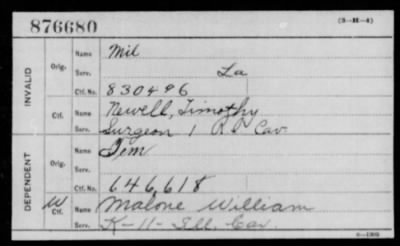 876680
(3—H—4)
INVALID
Orig.
Name Mil
Serv. La
Ctf. No. 830496
Ctf.
Name Newell, Timothy
Serv. Surgeon 1 R.I. Cav.
DEPENDENT
Orig.
Name Tem
Serv.
Ctf. No. 646,618
W
Ctf.
Name Malone William
Serv. K-11- Ill. Cav.